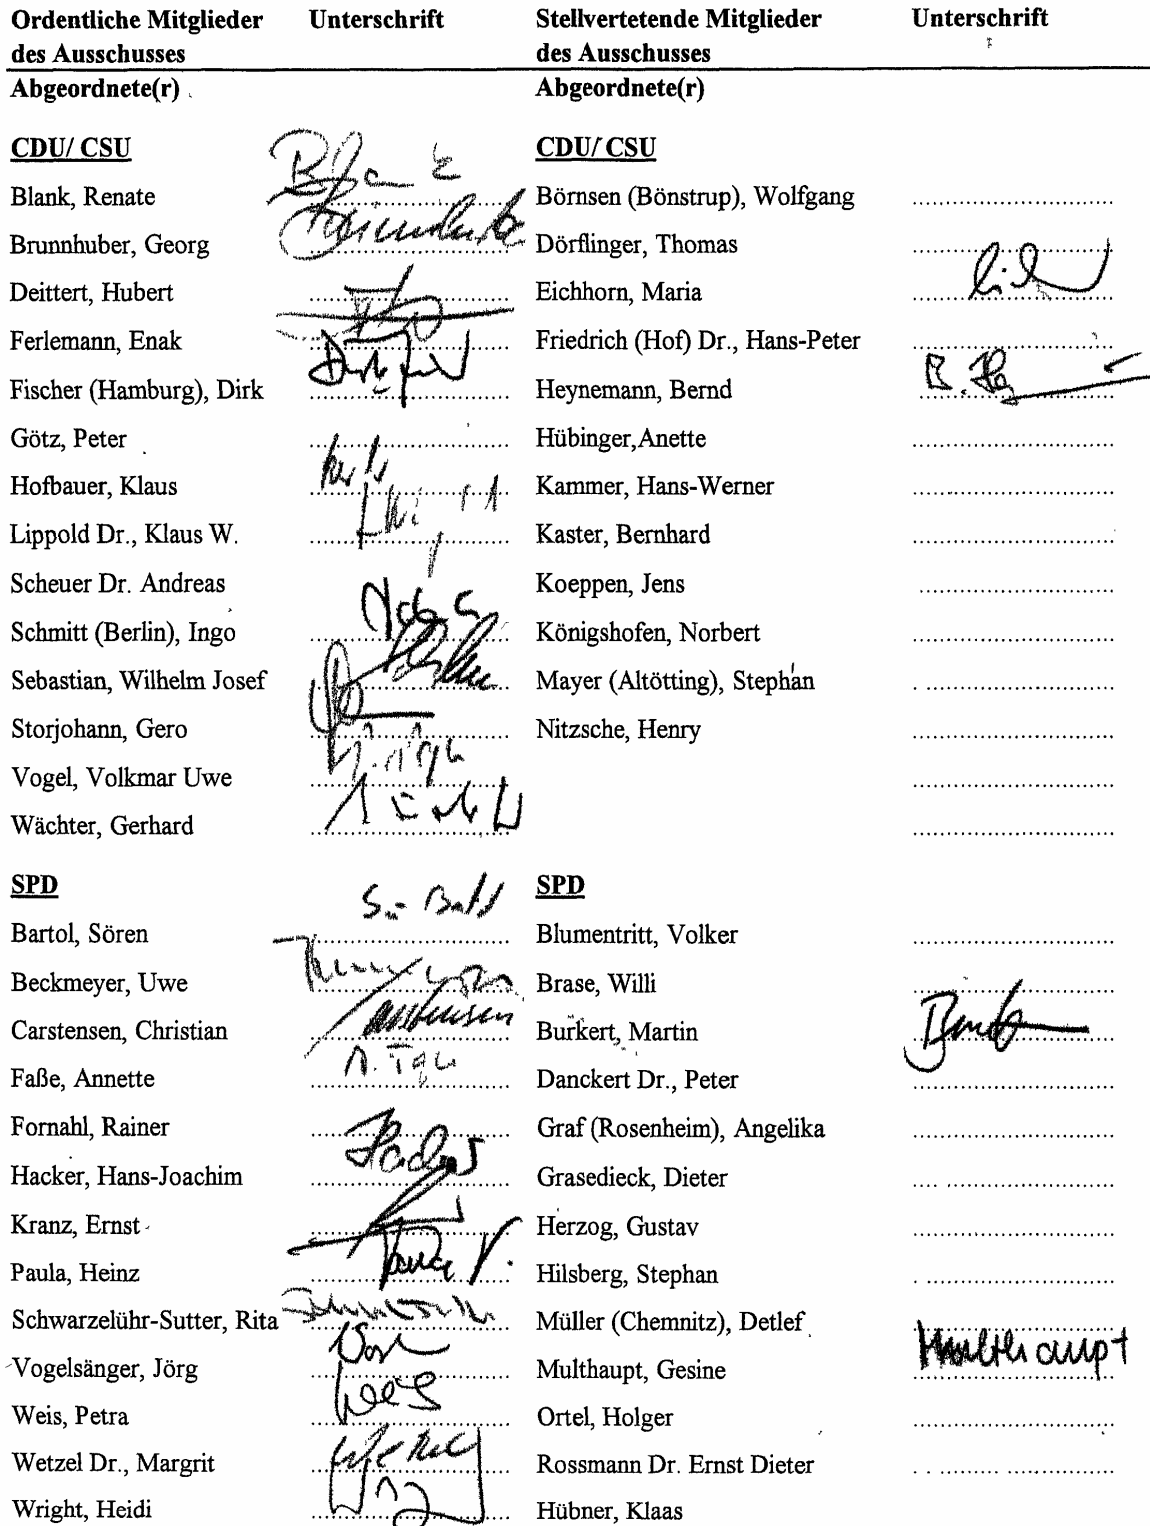 Ordentliche Mitglieder Unterschrift Stellvertetende Mitglieder Unterschrift
des Ausschusses des Ausschusses
Abgeordnete(r) Abgeordnete(r)
CDU/ CSU CDU/ CSU
Blank, Renate Blank Börnsen (Bönstrup), Wolfgang
Brunnhuber, Georg Dörflinger, Thomas
Deittert, Hubert Eichhorn, Maria
Ferlemann, Enak Friedrich (Hof) Dr., Hans-Peter
Fischer (Hamburg), Dirk Heynemann, Bernd
Götz, Peter Hübinger,Anette
Hofbauer, Klaus Kammer, Hans-Werner
Lippold Dr., Klaus W. Kaster, Bernhard
Scheuer Dr. Andreas Koeppen, Jens
Schmitt (Berlin), Ingo Königshofen, Norbert
Sebastian, Wilhelm Josef Mayer (Altötting), Stephan
Storjohann, Gero Nitzsche, Henry
Vogel, Volkmar Uwe
Wächter, Gerhard
SPD SPD
Bartol, Sören Blumentritt, Volker
Beckmeyer, Uwe Brase, Willi
Carstensen, Christian Carstensen Burkert, Martin
Faße, Annette Danckert Dr., Peter
Fornahl, Rainer Graf (Rosenheim), Angelika
Hacker, Hans-Joachim Hacker Grasedieck, Dieter
Kranz, Ernst Herzog, Gustav
Paula, Heinz Hilsberg, Stephan
Schwarzelühr-Sutter, Rita Müller (Chemnitz), Detlef
Vogelsänger, Jörg Multhaupt, Gesine Multhaupt
Weis, Petra Weis Ortel, Holger
Wetzel Dr., Margrit Wetzel Rossmann Dr. Ernst Dieter
Wright, Heidi Hübner, Klaas